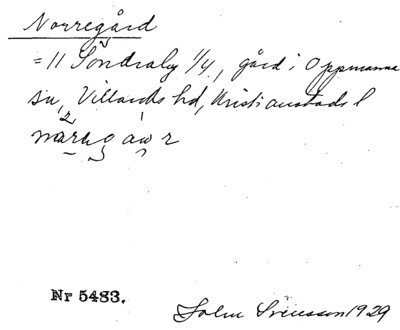 Norregård
= 11 Söndraby 1/4, gård i Oppmanna
sn, Villands hd, Kristianstads l
Nr 5483.
John Svensson 1929